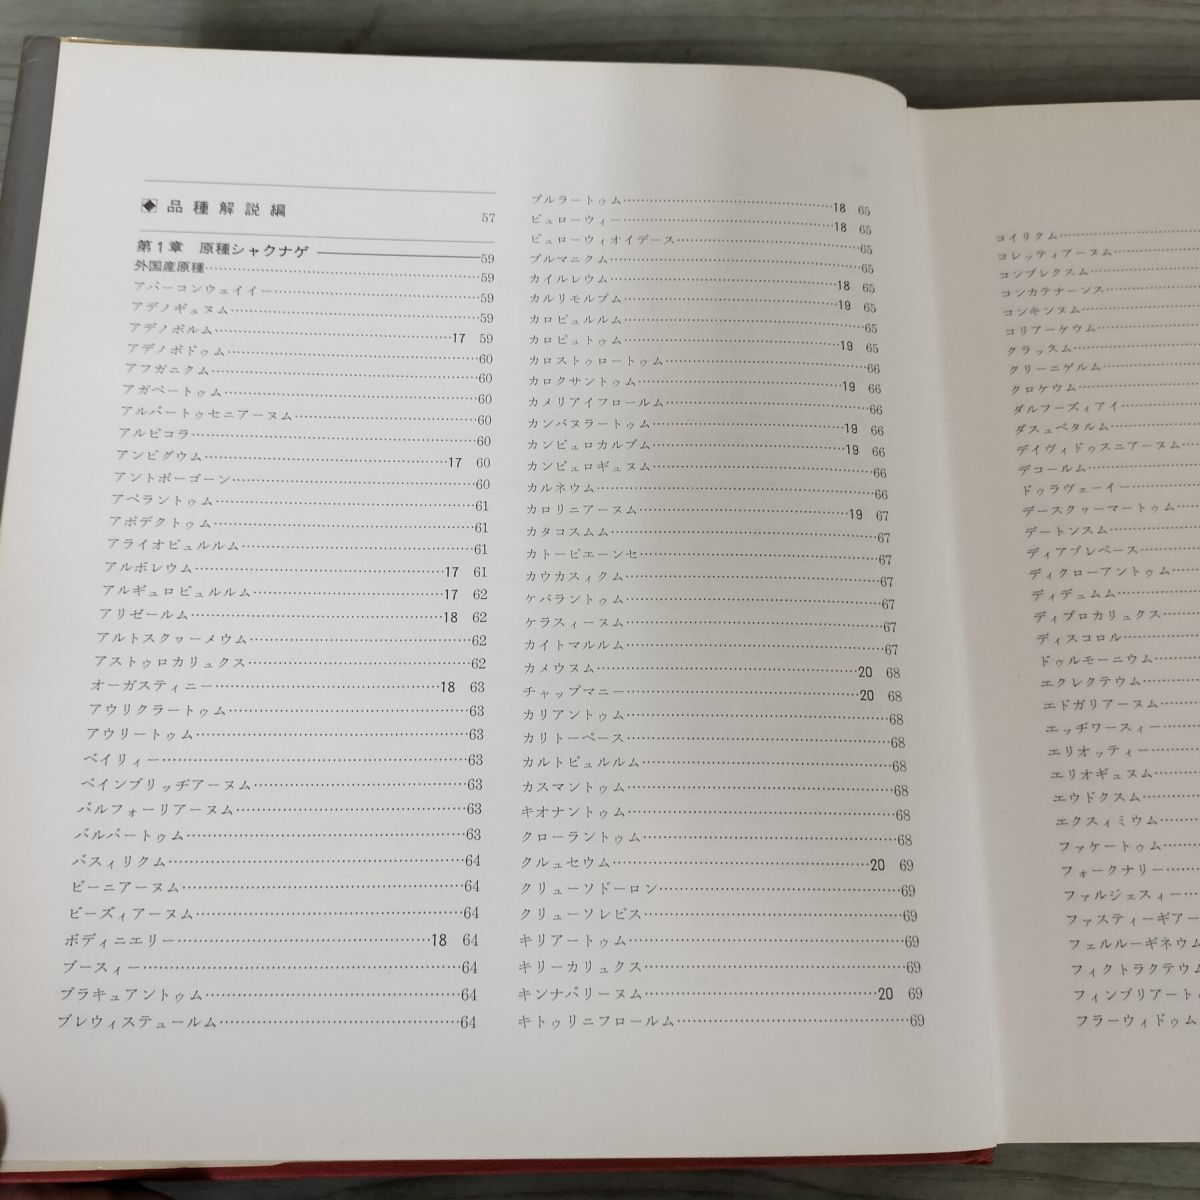 品種解説編 57
第1章 原種シャクナゲ 59
外国産原種 59
アバーコンウェイイー 59
アデノギュヌム 59
アデノポルム 17 59
アデノポドゥム 60
アフガニクム 60
アガペートゥム 60
アルバートゥセニアーヌム 60
アルピコラ 60
アンビグウム 17 60
アントポーゴーン 60
アペラントゥム 61
アポデクトゥム 61
アライオピュルルム 61
アルボレウム 17 61
アルギュロピュルルム 17 62
アリゼールム 18 62
アルトスクヮーメウム 62
アストゥロカリュクス 62
オーガスティニー 18 63
アウリクラートゥム 63
アウリートゥム 63
ベイリィー 63
ベインブリッヂアーヌム 63
バルフォーリアーヌム 63
バルバートゥム 63
バスィリクム 64
ビーニアーヌム 64
ビーズィアーヌム 64
ボディニエリー 18 64
ブースィー 64
ブラキュアントゥム 64
ブレウィステュールム 64
ブルラートゥム 18 65
ビュローウィー 18 65
ビュローウィオイデース 65
ブルマニクム 65
カイルレウム 18 65
カルリモルプム 19 65
カロピュルルム 65
カロピュトゥム 19 65
カロストゥロートゥム 66
カロクサントゥム 19 66
カメリアイフロールム 66
カンパヌラートゥム 19 66
カンピュロカルプム 19 66
カンピュロギュヌム 66
カルネウム 66
カロリニアーヌム 19 67
カタコスムム 67
カトービエーンセ 67
カウカスィクム 67
ケパラントゥム 67
ケラスィーヌム 67
カイトマルルム 67
カメウヌム 20 68
チャップマニー 20 68
カリアントゥム 68
カリトーペース 68
カルトピュルルム 68
カスマントゥム 68
キオナントゥム 68
クローラントゥム 68
クルュセウム 20 69
クリューソドーロン 69
クリューソレピス 69
キリアートゥム 69
キリーカリュクス 69
キンナバリーヌム 20 69
キトゥリニフロールム 69
コイリクム
コレッティアーヌム
コンプレクスム
コンカテナーンス
コンキンヌム
コリアーケウム
クラッスム
クリーニゲルム
クロケウム
ダルフーズィアイ
ダスュペタルム
デイヴィドゥスニアーヌム
デコールム
ドゥラヴェーイー
デースクヮーマートゥム
デートンスム
ディアプレペース
ディクローアントゥム
ディデュムム
ディプロカリュクス
ディスコロル
ドゥルモーニウム
エクレクテウム
エドガリアーヌム
エッヂワースィー
エリオッティー
エリオギュヌム
エウドクスム
エクスィミウム
ファケートゥム
フォークナリー
ファルジェスィー
ファスティーギアー
フェルルーギネウム
フィクトラクテウム
フィンブリアート
フラーウィドゥム